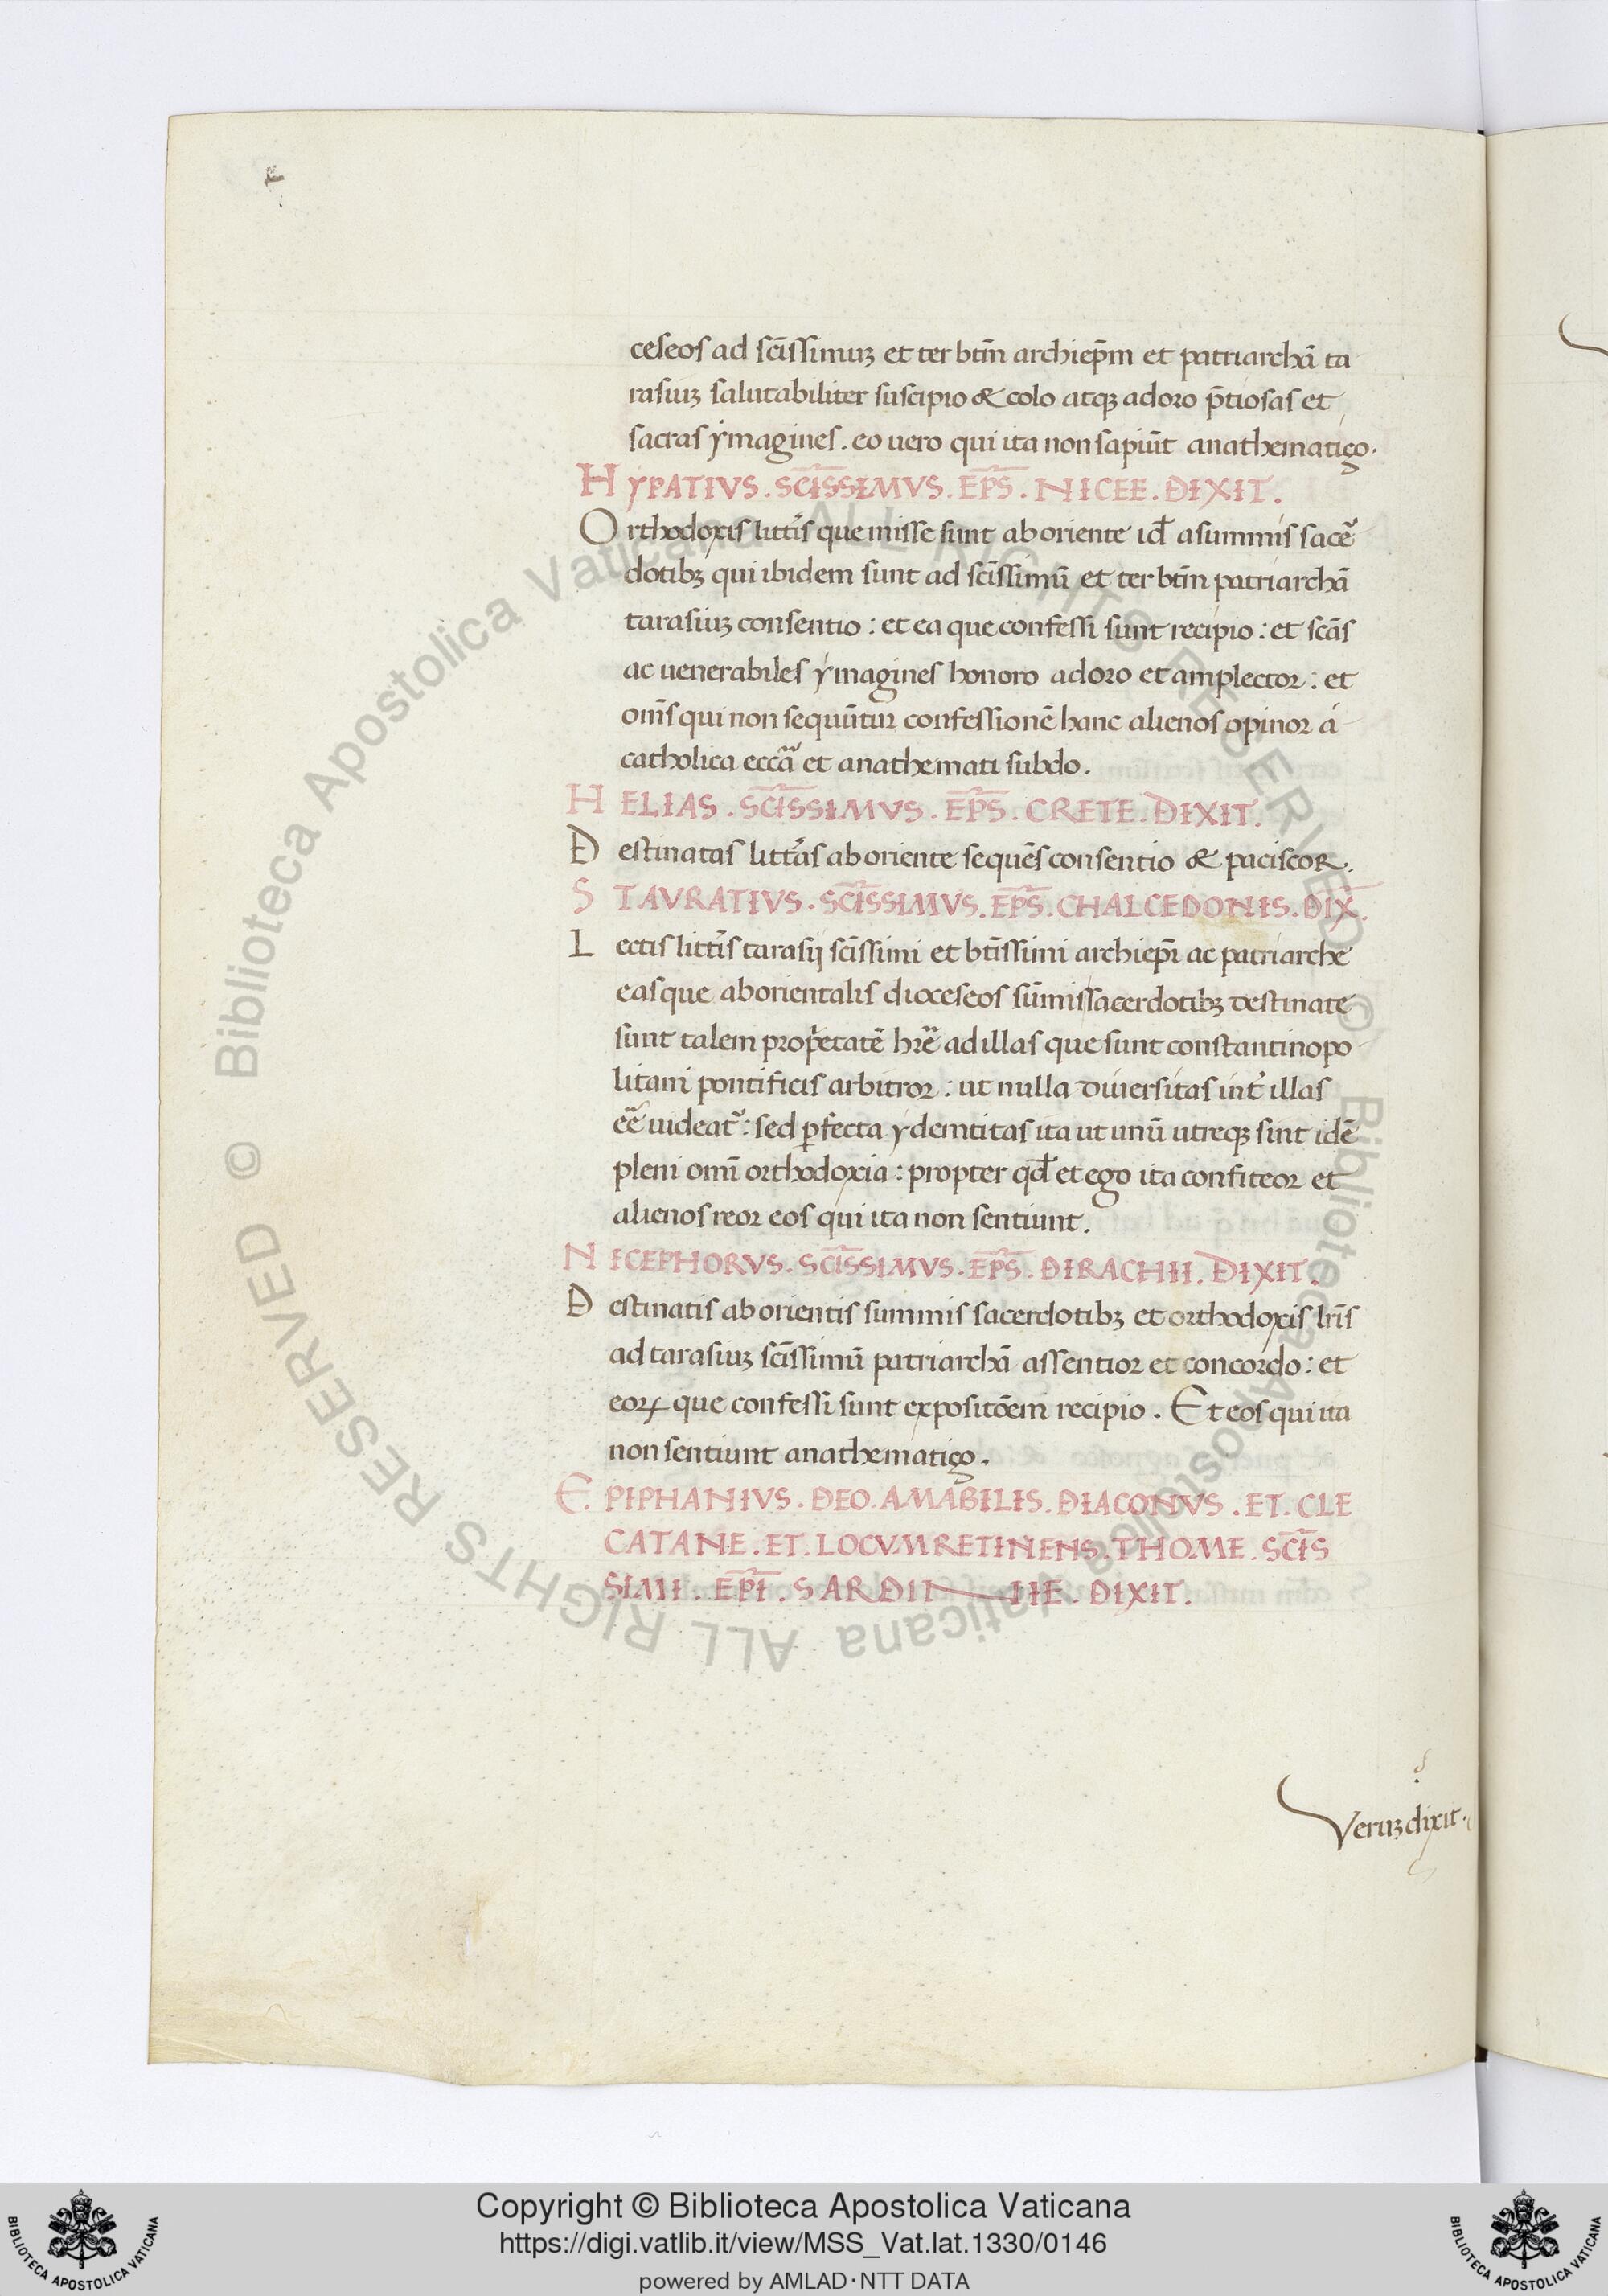 ceseos ad sc̄issimuꝫ et ter btm̄ archiep̄m et patriarchā ta
rasiuꝫ salutabiliter suscipio & colo atqꝫ adoro p̄tiosas et
sacras ẏmagines . eo uero qui ita non sapiūt anathematiço .
HYPATIVS . SC̄ISSIMVS . EP̄S . NICEE . DIXIT .
Orthodoxis litt̄is que misse sunt ab oriente id̄ a summis sacē
dotibꝫ qui ibidem sunt ad sc̄issimū et ter btm̄ patriarchā
tarasiuꝫ consentio : et ea que confessi sunt recipio : et scās
ac uenerabiles ẏmagines honoro adoro et amplector : et
om̄s qui non sequūtur confessionē hanc alienos opinor á
catholica eccā et anathemati subdo .
HELIAS . SC̄ISSIMVS . EP̄S . CRETE . DIXIT .
Destinatas litt̄as ab oriente sequēs consentio & paciscoR .
STAVRATIVS . SC̄ISSIMVS . EP̄S . CHALCEDONIS . DIX̄ .
Lectis litt̄is tarasij sc̄issimi et bt̄issimi archiep̄i ac patriarche
easque ab orientalis dioceseos sūmis sacerdotibꝫ destinate
sunt talem prop̄etatē hr̄e ad illas que sunt constantinopo
litani pontificis arbitror : ut nulla diuersitas int̄ illas
ēe uideat̄ : sed ꝑfecta ẏdemtitas ita ut unū utreqꝫ sint idē
pleni omī orthodoxia : propter qd̄ et ego ita confiteor et
alienos reor eos qui ita non sentiunt .
NICEPHORVS . SC̄ISSIMVS . EP̄S . DIRACHII . DIXIT .
Destinatis ab orientis summis sacerdotibꝫ et orthodoxis lr̄is
ad tarasiuꝫ sc̄issimū patriarchā assentior et concordo : et
eoꝝ que confessi sunt expositōem recipio . Et eos qui ita
non sentiunt anathematiço .
EPIPHANIVS . DEO . AMABILIS . DIACONVS . ET . CLE
CATANE . ET . LOCVM RETINENS . THOME . SC̄IS
SIMI . EP̄I . SARDII—NE . DIXIT .
Veruꝫ dixit .
© Biblioteca Apostolica Vaticana ALL RIGHTS RESERVED
© Biblioteca Apostolica Vaticana ALL RIGHTS RESERVED
Copyright © Biblioteca Apostolica Vaticana
https://digi.vatlib.it/view/MSS_Vat.lat.1330/0146
powered by AMLAD·NTT DATA
BIBLIOTECA APOSTOLICA VATICANA
BIBLIOTECA APOSTOLICA VATICANA